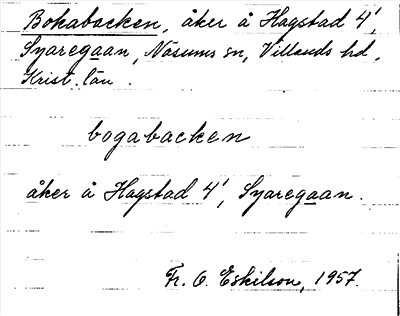 Bokabacken, åker å Hagstad 4¹,
Syaregaan, Näsums sn, Villands hd,
Krist. län.
bogabacken
åker å Hagstad 4¹, Syaregaan.
Fr. O. Eskilson, 1957.